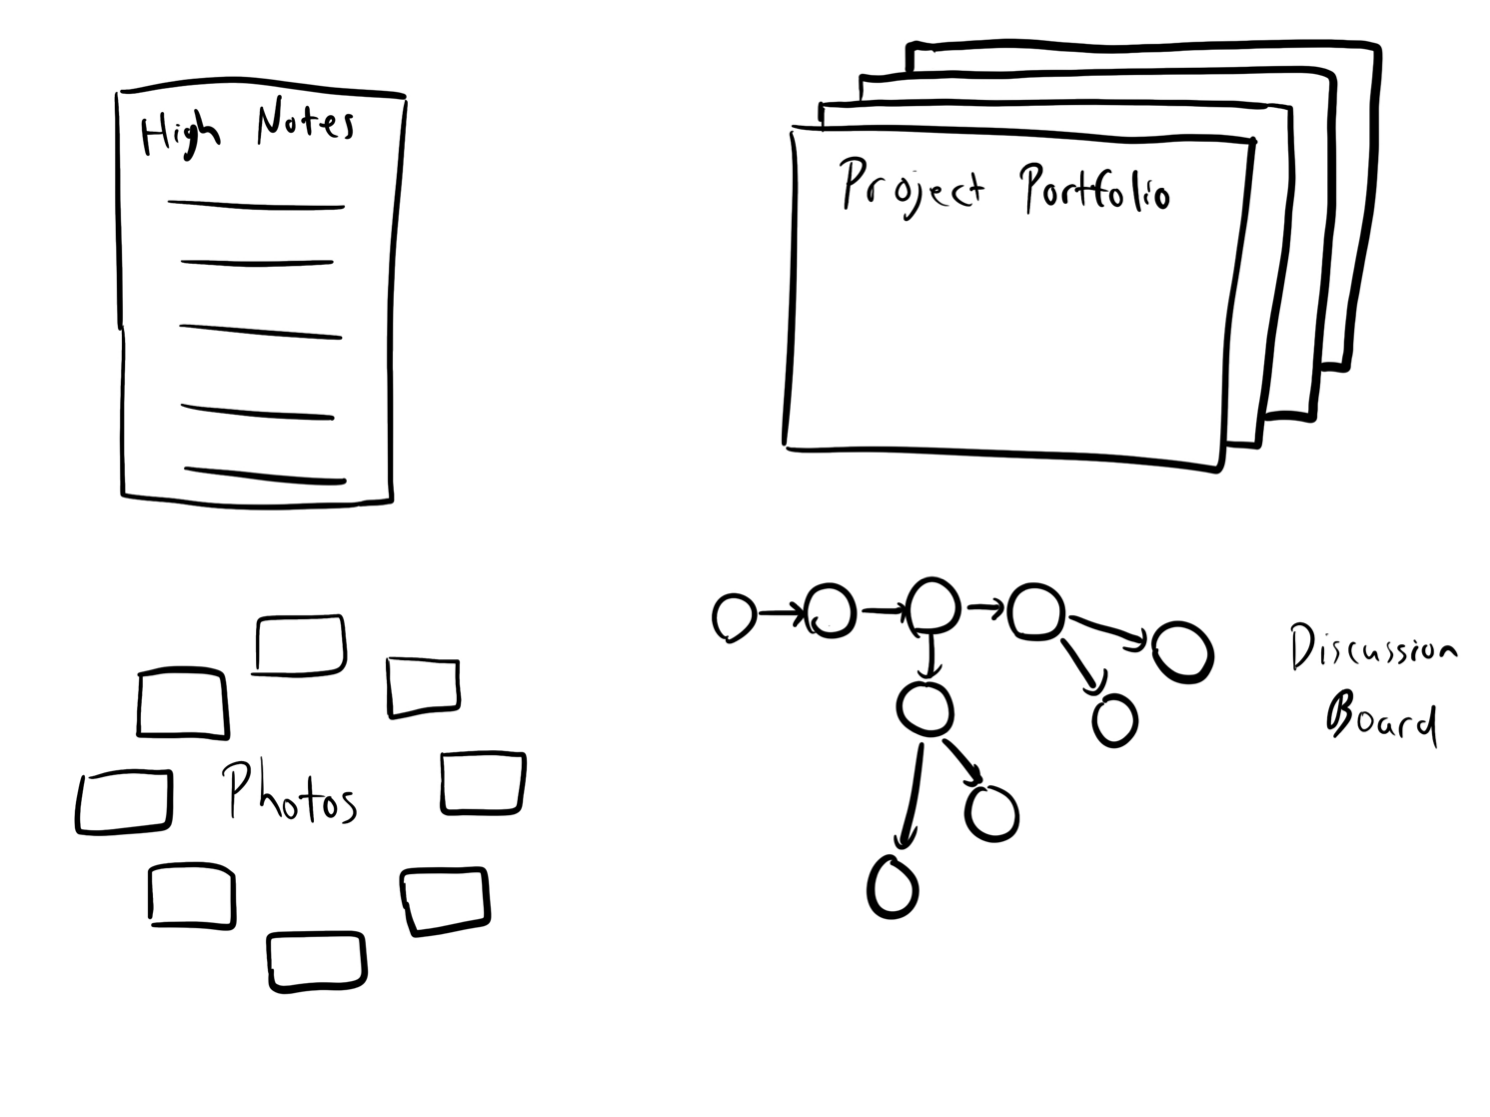 High Notes
Project Portfolio
Photos
Discussion
Board